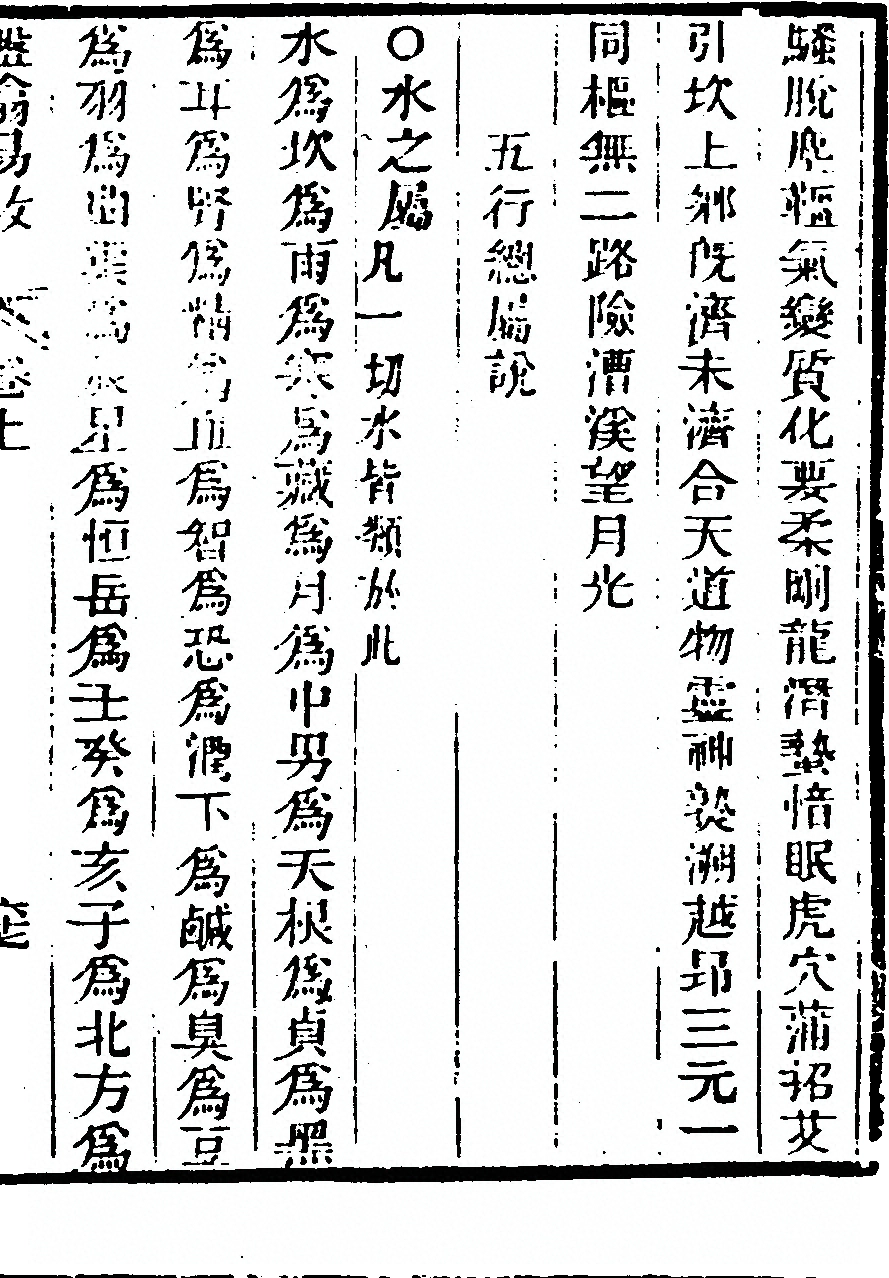 騷脫氣變質化要柔剛龍潛蟄愔眠虎穴蒲招艾
引坎上鄉既濟未濟合天道物靈神溯越昴三元一
同樞無二路險漕溪望月光
五行總屬說
〇水之屬凡一切水皆類於此
水爲坎爲雨爲寒爲藏爲月爲中男爲天根爲貞爲黑
爲耳爲腎爲精爲血爲智爲恐爲潤下爲鹹爲臭爲豆
爲羽爲幽冀爲水星爲恒岳爲壬癸爲亥子爲北方爲
易攷 卷上